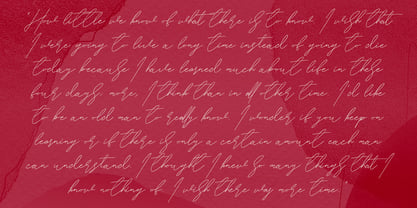 'How little we know of what there is to know. I wish that
I were going to live a long time instead of going to die
today because I have learned much about life in these
four days; more, I think than in all other time. I'd like
to be an old man to really know. I wonder if you keep on
learning or if there is only a certain amount each man
can understand. I thought I knew so many things that I
know nothing of. I wish there was more time.'